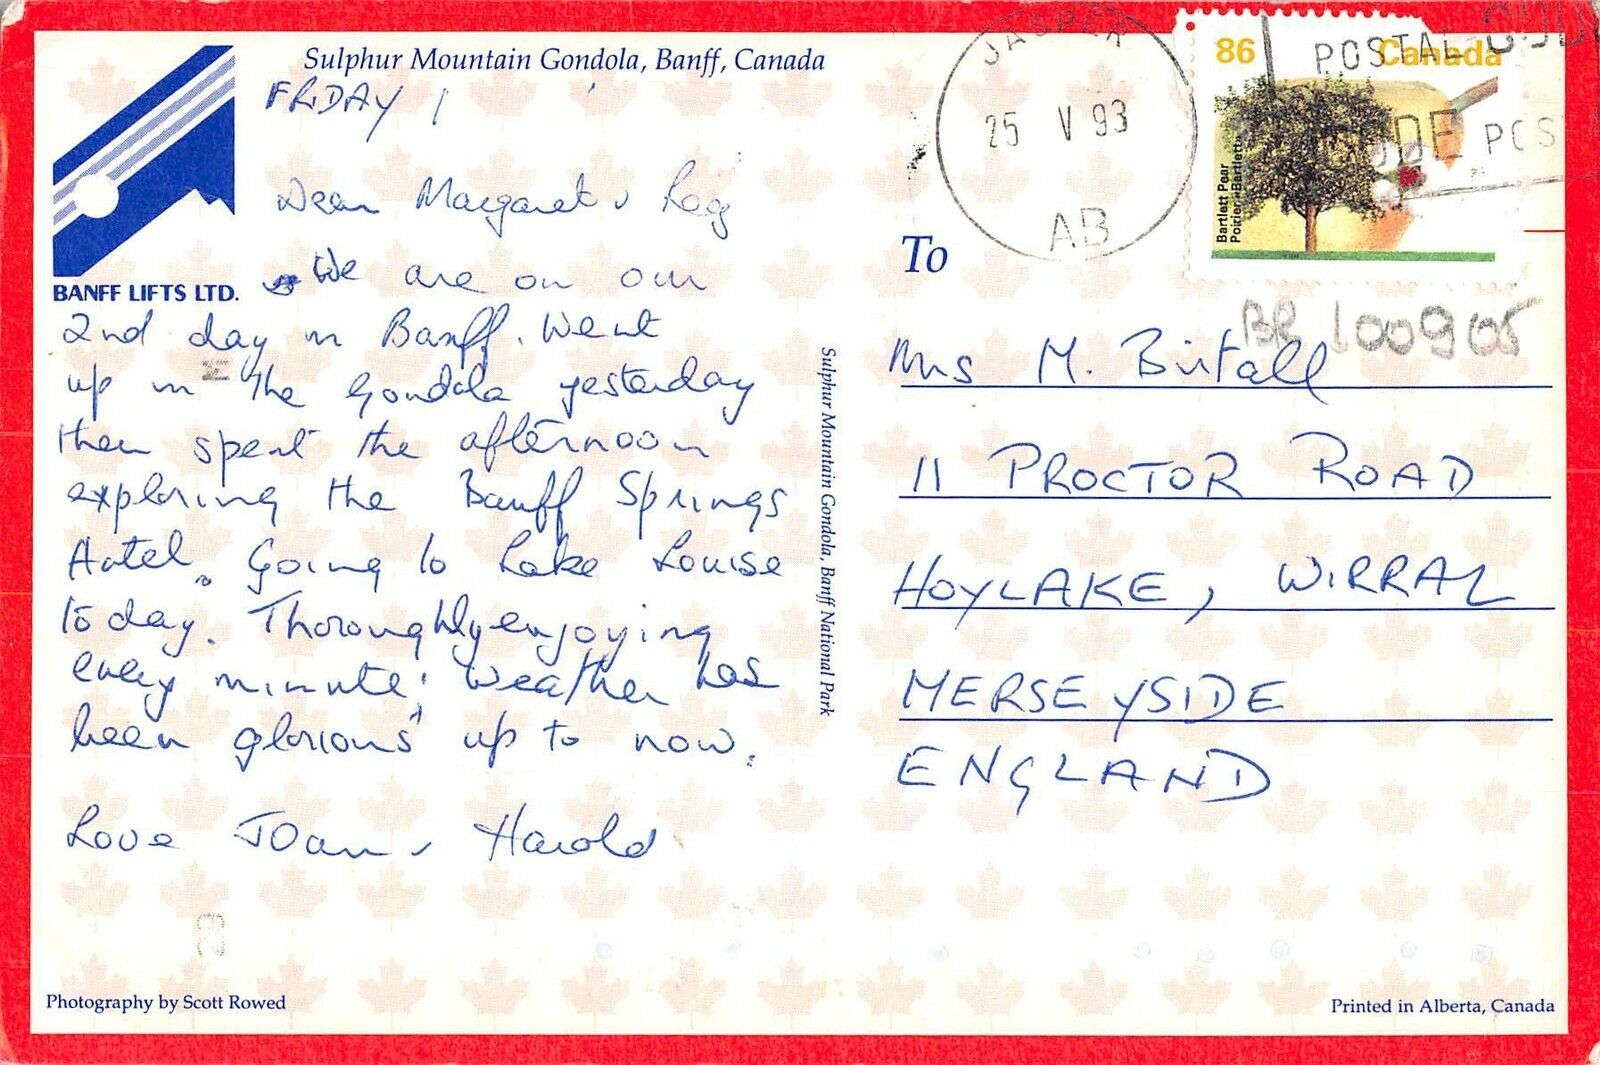 Sulphur Mountain Gondola, Banff, Canada
BANFF LIFTS LTD.
FRIDAY
Dear Margaret & Reg
We are on our
2nd day in Banff. Went
up in the Gondola yesterday
then spent the afternoon
exploring the Banff Springs
Hotel. Going to Lake Louise
today. Thoroughly enjoying
every minute! Weather has
been glorious up to now.
Love Joan & Harold
Photography by Scott Rowed
Sulphur Mountain Gondola, Banff National Park
JASPER
25 V 93
AB
86
Canada
Bartlett Pear
Poirier Bartlett
POSTAL CODE
CODE POST
BR 100905
To
Mrs M. Birtall
11 PROCTOR ROAD
HOYLAKE, WIRRAL
MERSEYSIDE
ENGLAND
Printed in Alberta, Canada